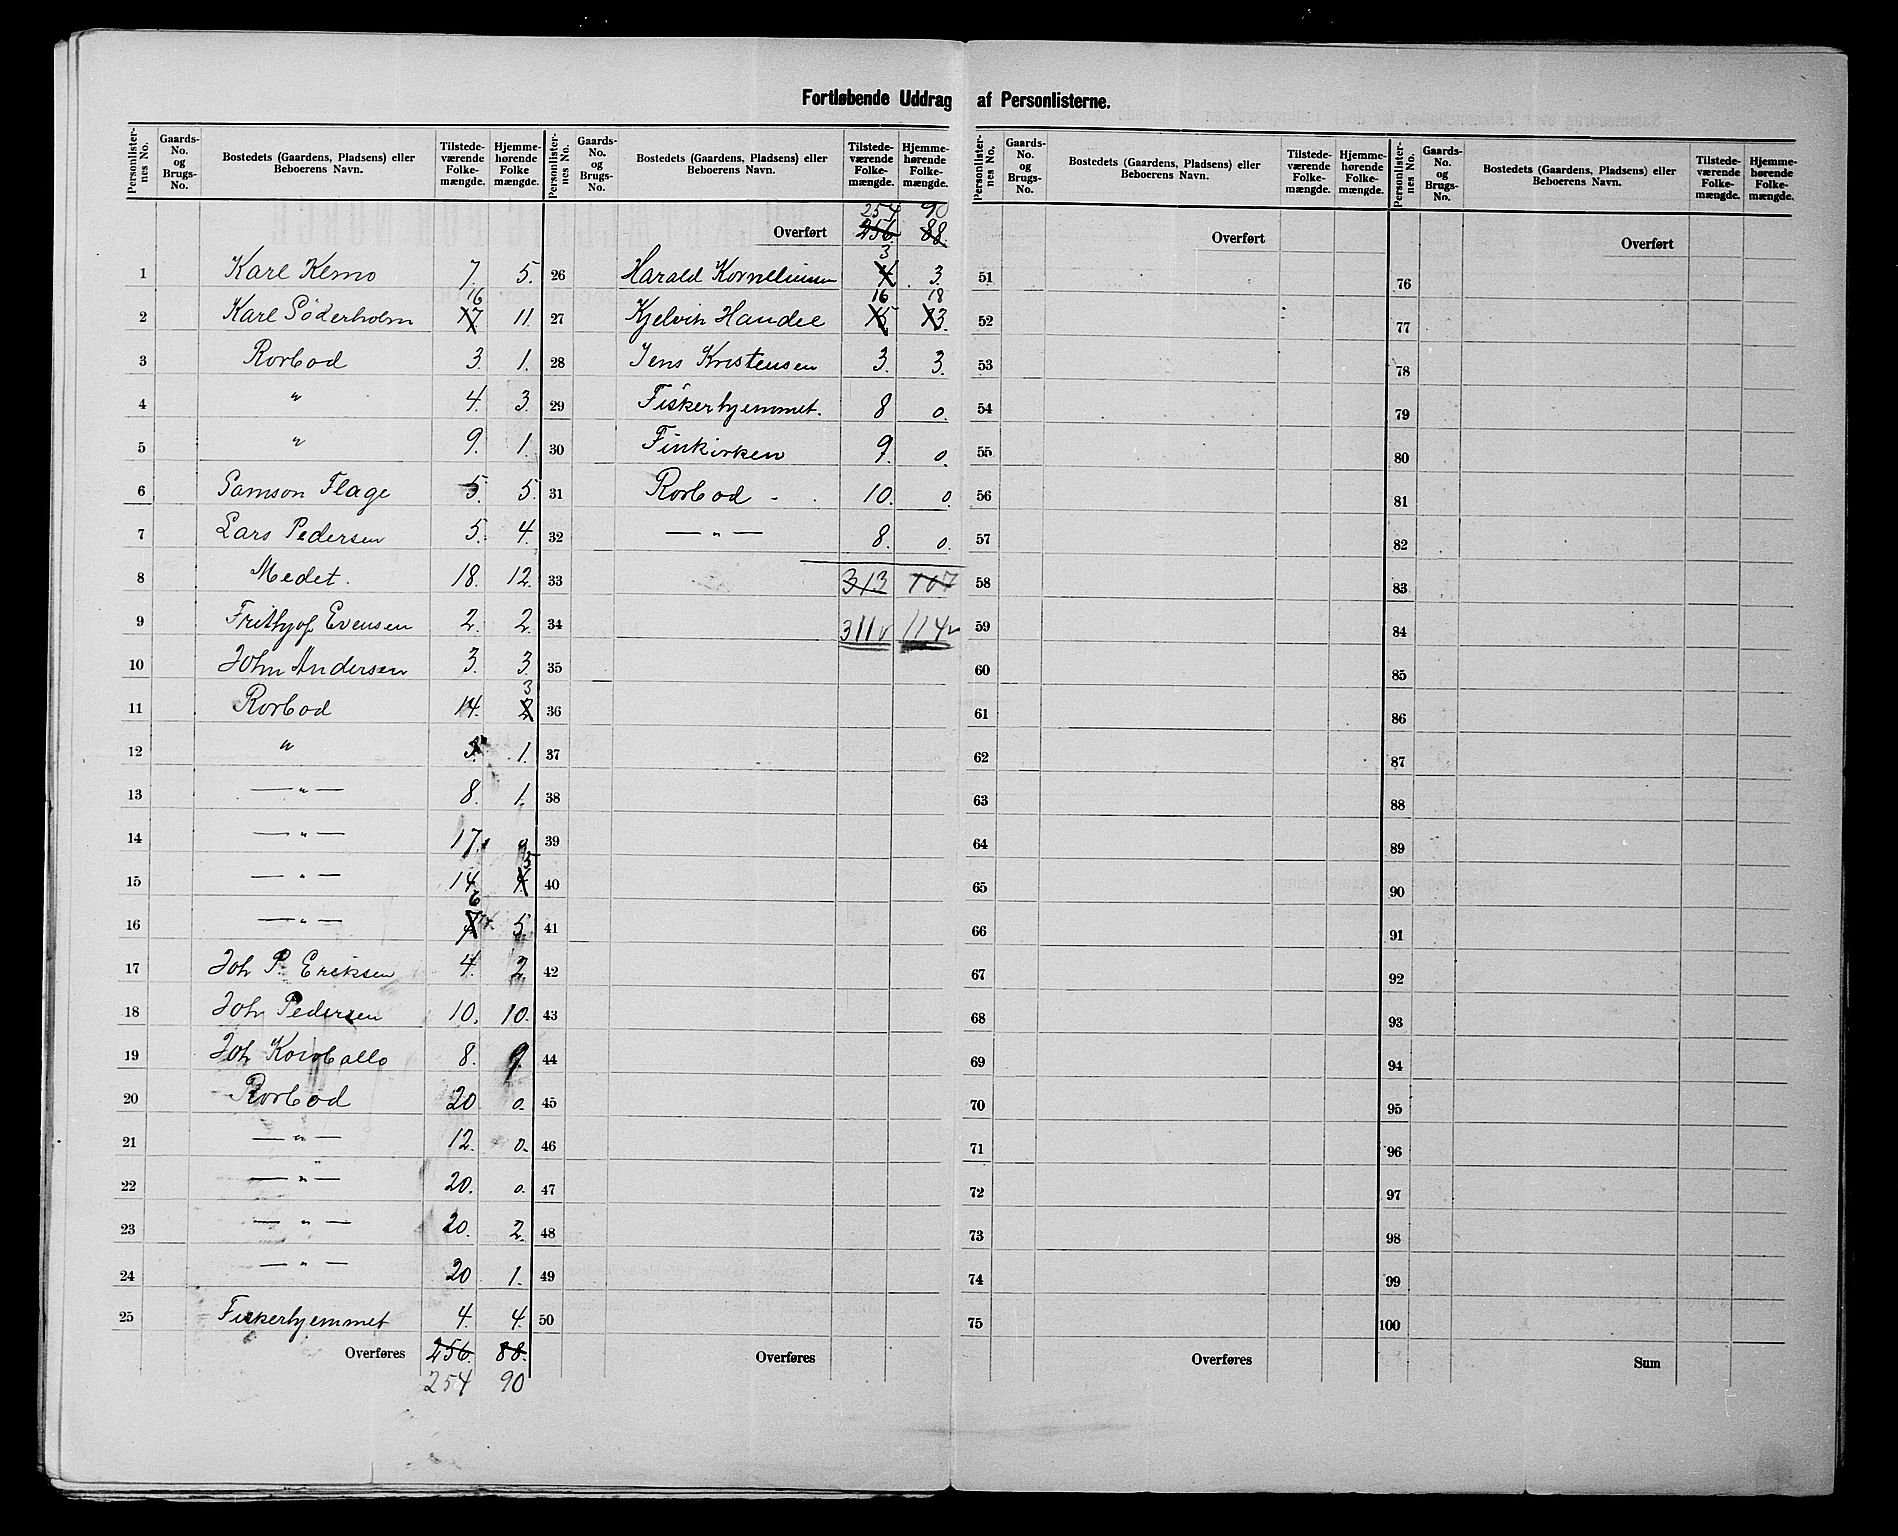 Fortløbende Uddrag af Personlisterne.
Personlister- nes No. | Gaards- No. og Brugs- No. | Bostedets (Gaardens, Pladsens) eller Beboerens Navn. | Tilstede- værende Folke- mængde. | Hjemme- hørende Folke mængde.
1 Karl Kemo 7. 5.
2 Karl Söderholm 17 16 11.
3 Rorbod 3. 1.
4 " 4. 3.
5 " 9. 1.
6 Samson Flage 5. 5.
7 Lars Pedersen 5. 4.
8 Medet. 18. 12.
9 Frithjof Evensen 2. 2.
10 John Andersen 3. 3.
11 Rorbod 14. 2 3
12 " 1.
13 — " — 8. 1.
14 — " — 17.
15 — " — 14. 4 5
16 — " — 7 6 5.
17 Joh P. Eriksen 4. 2.
18 Joh Pedersen 10. 10.
19 Joh 8. 9.
20 Rorbod 20 0.
21 — " — 12. 0.
22 — " — 20. 0.
23 — " — 20. 2.
24 — " — 20 1.
25 Fiskerhjemmet 4. 4.
Overføres 256. 88.
254 90
Personlister- nes No. | Gaards- No. og Brugs- No. | Bostedets (Gaardens, Pladsens) eller Beboerens Navn. | Tilstede- værende Folke- mængde. | Hjemme- hørende Folke- mængde.
254 90
Overført 256. 88.
26 Harald Korneliussen 4 3 3.
27 Kjelvik Handel 15 16 13. 18
28 Jens Kristensen 3. 3.
29 Fiskerhjemmet. 8 0.
30 Finkirken 9. 0.
31 Rorbod - 10. 0
32 — " — 8. 0.
33 313 107
34 311 v 114 v
35
36
37
38
39
40
41
42
43
44
45
46
47
48
49
50
Overføres
Personlister- nes No. | Gaards- No. og Brugs- No. | Bostedets (Gaardens, Pladsens) eller Beboerens Navn. | Tilstede- værende Folke- mængde. | Hjemme- hørende Folke- mængde.
Overført
51
52
53
54
55
56
57
58
59
60
61
62
63
64
65
66
67
68
69
70
71
72
73
74
75
Overføres
Personlister- nes No. | Gaards- No. og Brugs- No. | Bostedets (Gaardens, Pladsens) eller Beboerens Navn. | Tilstede- værende Folke- mængde. | Hjemme- hørende Folke- mængde.
Overført
76
77
78
79
80
81
82
83
84
85
86
87
88
89
90
91
92
93
94
95
96
97
98
99
100
Sum